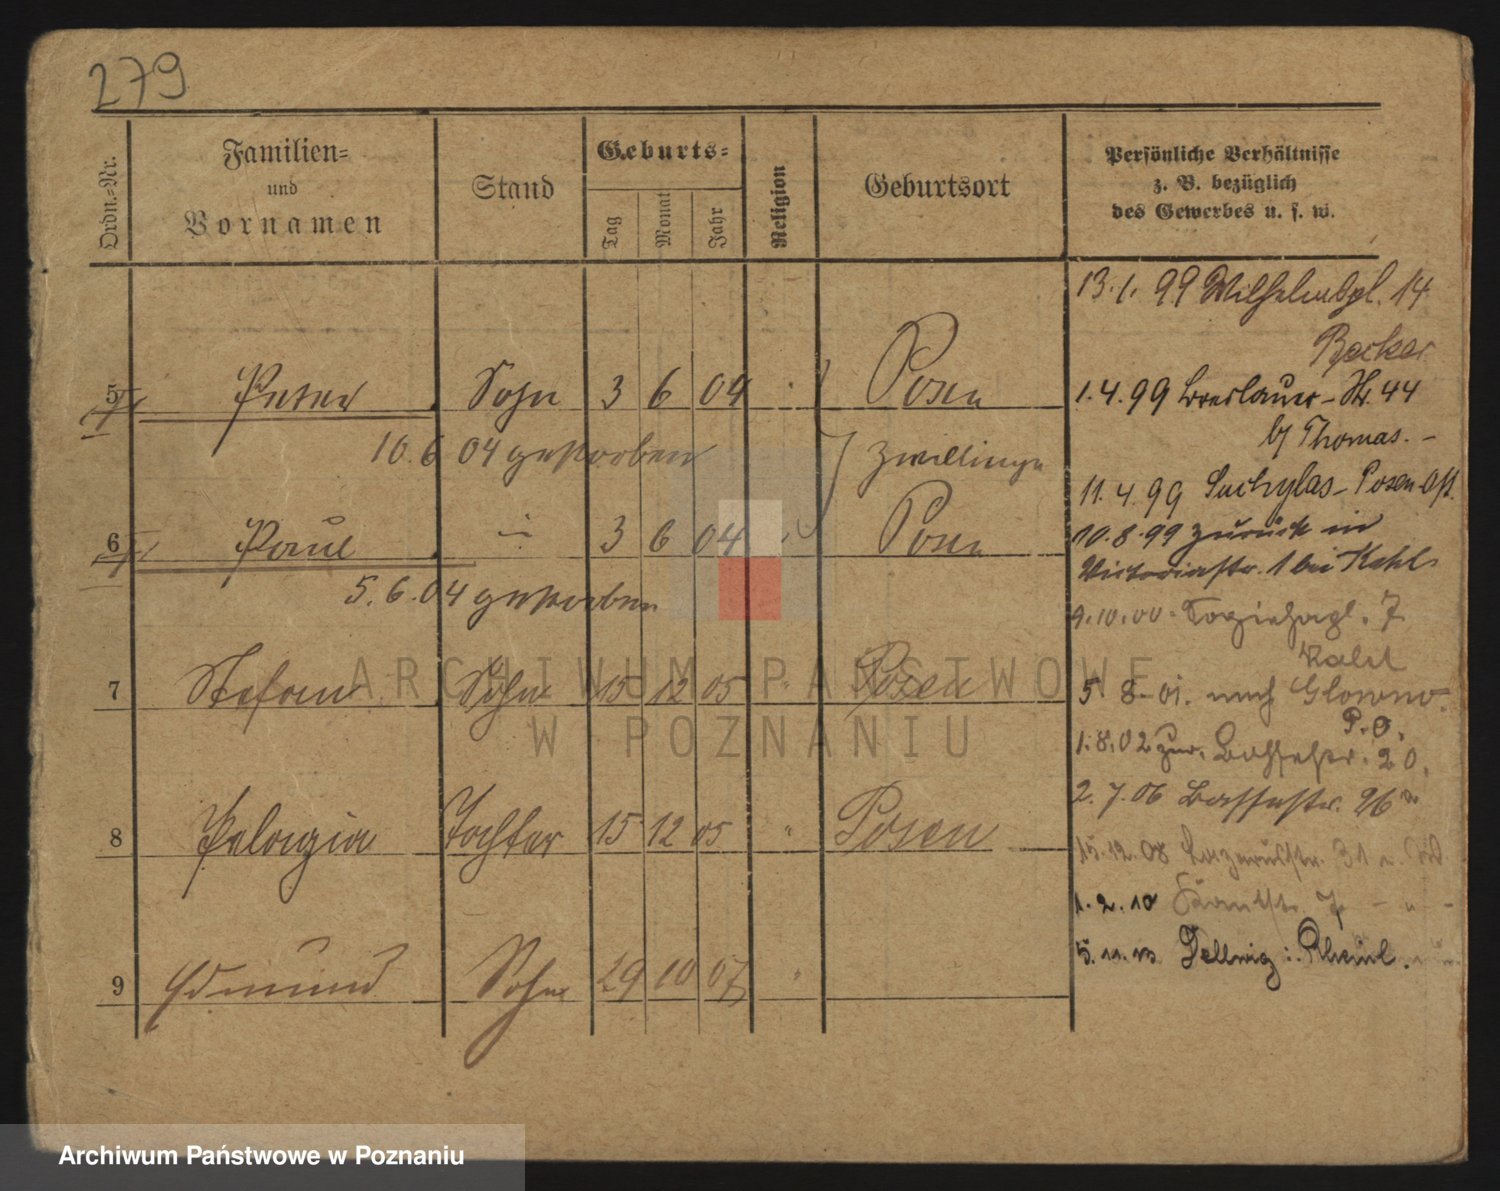 279
Ordn.-Nr.
Familien-
und
Vornamen
Stand
Geburts-
Tag
Monat
Jahr
Religion
Geburtsort
Persönliche Verhältnisse
z. B. bezüglich
des Gewerbes u. s. w.
5 Peter Sohn 3 6 04 Posen
10.6.04 gestorben
Zwillinge
6 Paul 3 6 04 Posen
5.6.04 gestorben
7 Stefan Sohn 15 12 05 " Posen
8 Pelagia Tochter 15 12 05 " Posen
9 Edmund Sohn 29 10 07 "
13.1.99 Wilhelmspl. 14
Becker
1.4.99 Breslauer-Str. 44
b/ Thomas. -
11.4.99 - Posen Ost.
10.8.99 zurück in
Victoriastr. 1 bei Kahl
9.10.00 7
5.8.01. nach Glowno.
P.O.
1.8.02 zur. 20.
2.7.06
15.12.08 Lazarusstr. 31
1.2.10 Kantstr. 7 - " -
5.11. Dellwig i. Rheinl.
ARCHIWUM PAŃSTWOWE
W POZNANIU
Archiwum Państwowe w Poznaniu